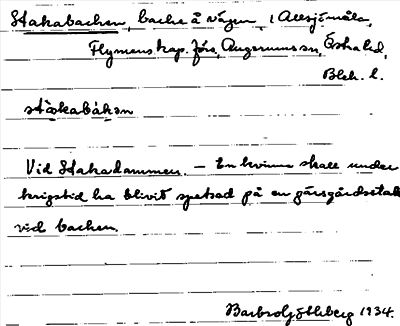 Stakabacken, backe å vägen, i Allsjömåla,
Flymens kap. förs., Augerums sn, Östra hd,
Blek. l.
stɑ̀kabàkən
Vid Stakadammen. – En kvinna skall under
krigstid ha blivit spetsad på en gärsgårdsstak
vid backen.
Barbro Göthberg 1934.